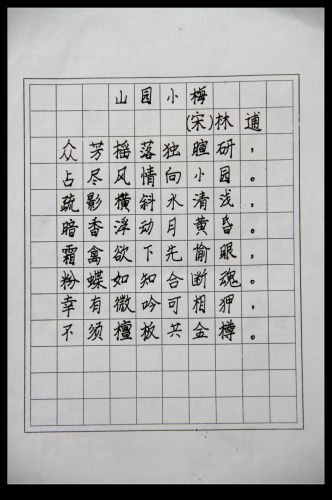 山园小梅
(宋)林逋
众芳摇落独暄研，
占尽风情向小园。
疏影横斜水清浅，
暗香浮动月黄昏。
霜禽欲下先偷眼，
粉蝶如知合断魂。
幸有微吟可相狎，
不须檀板共金樽。